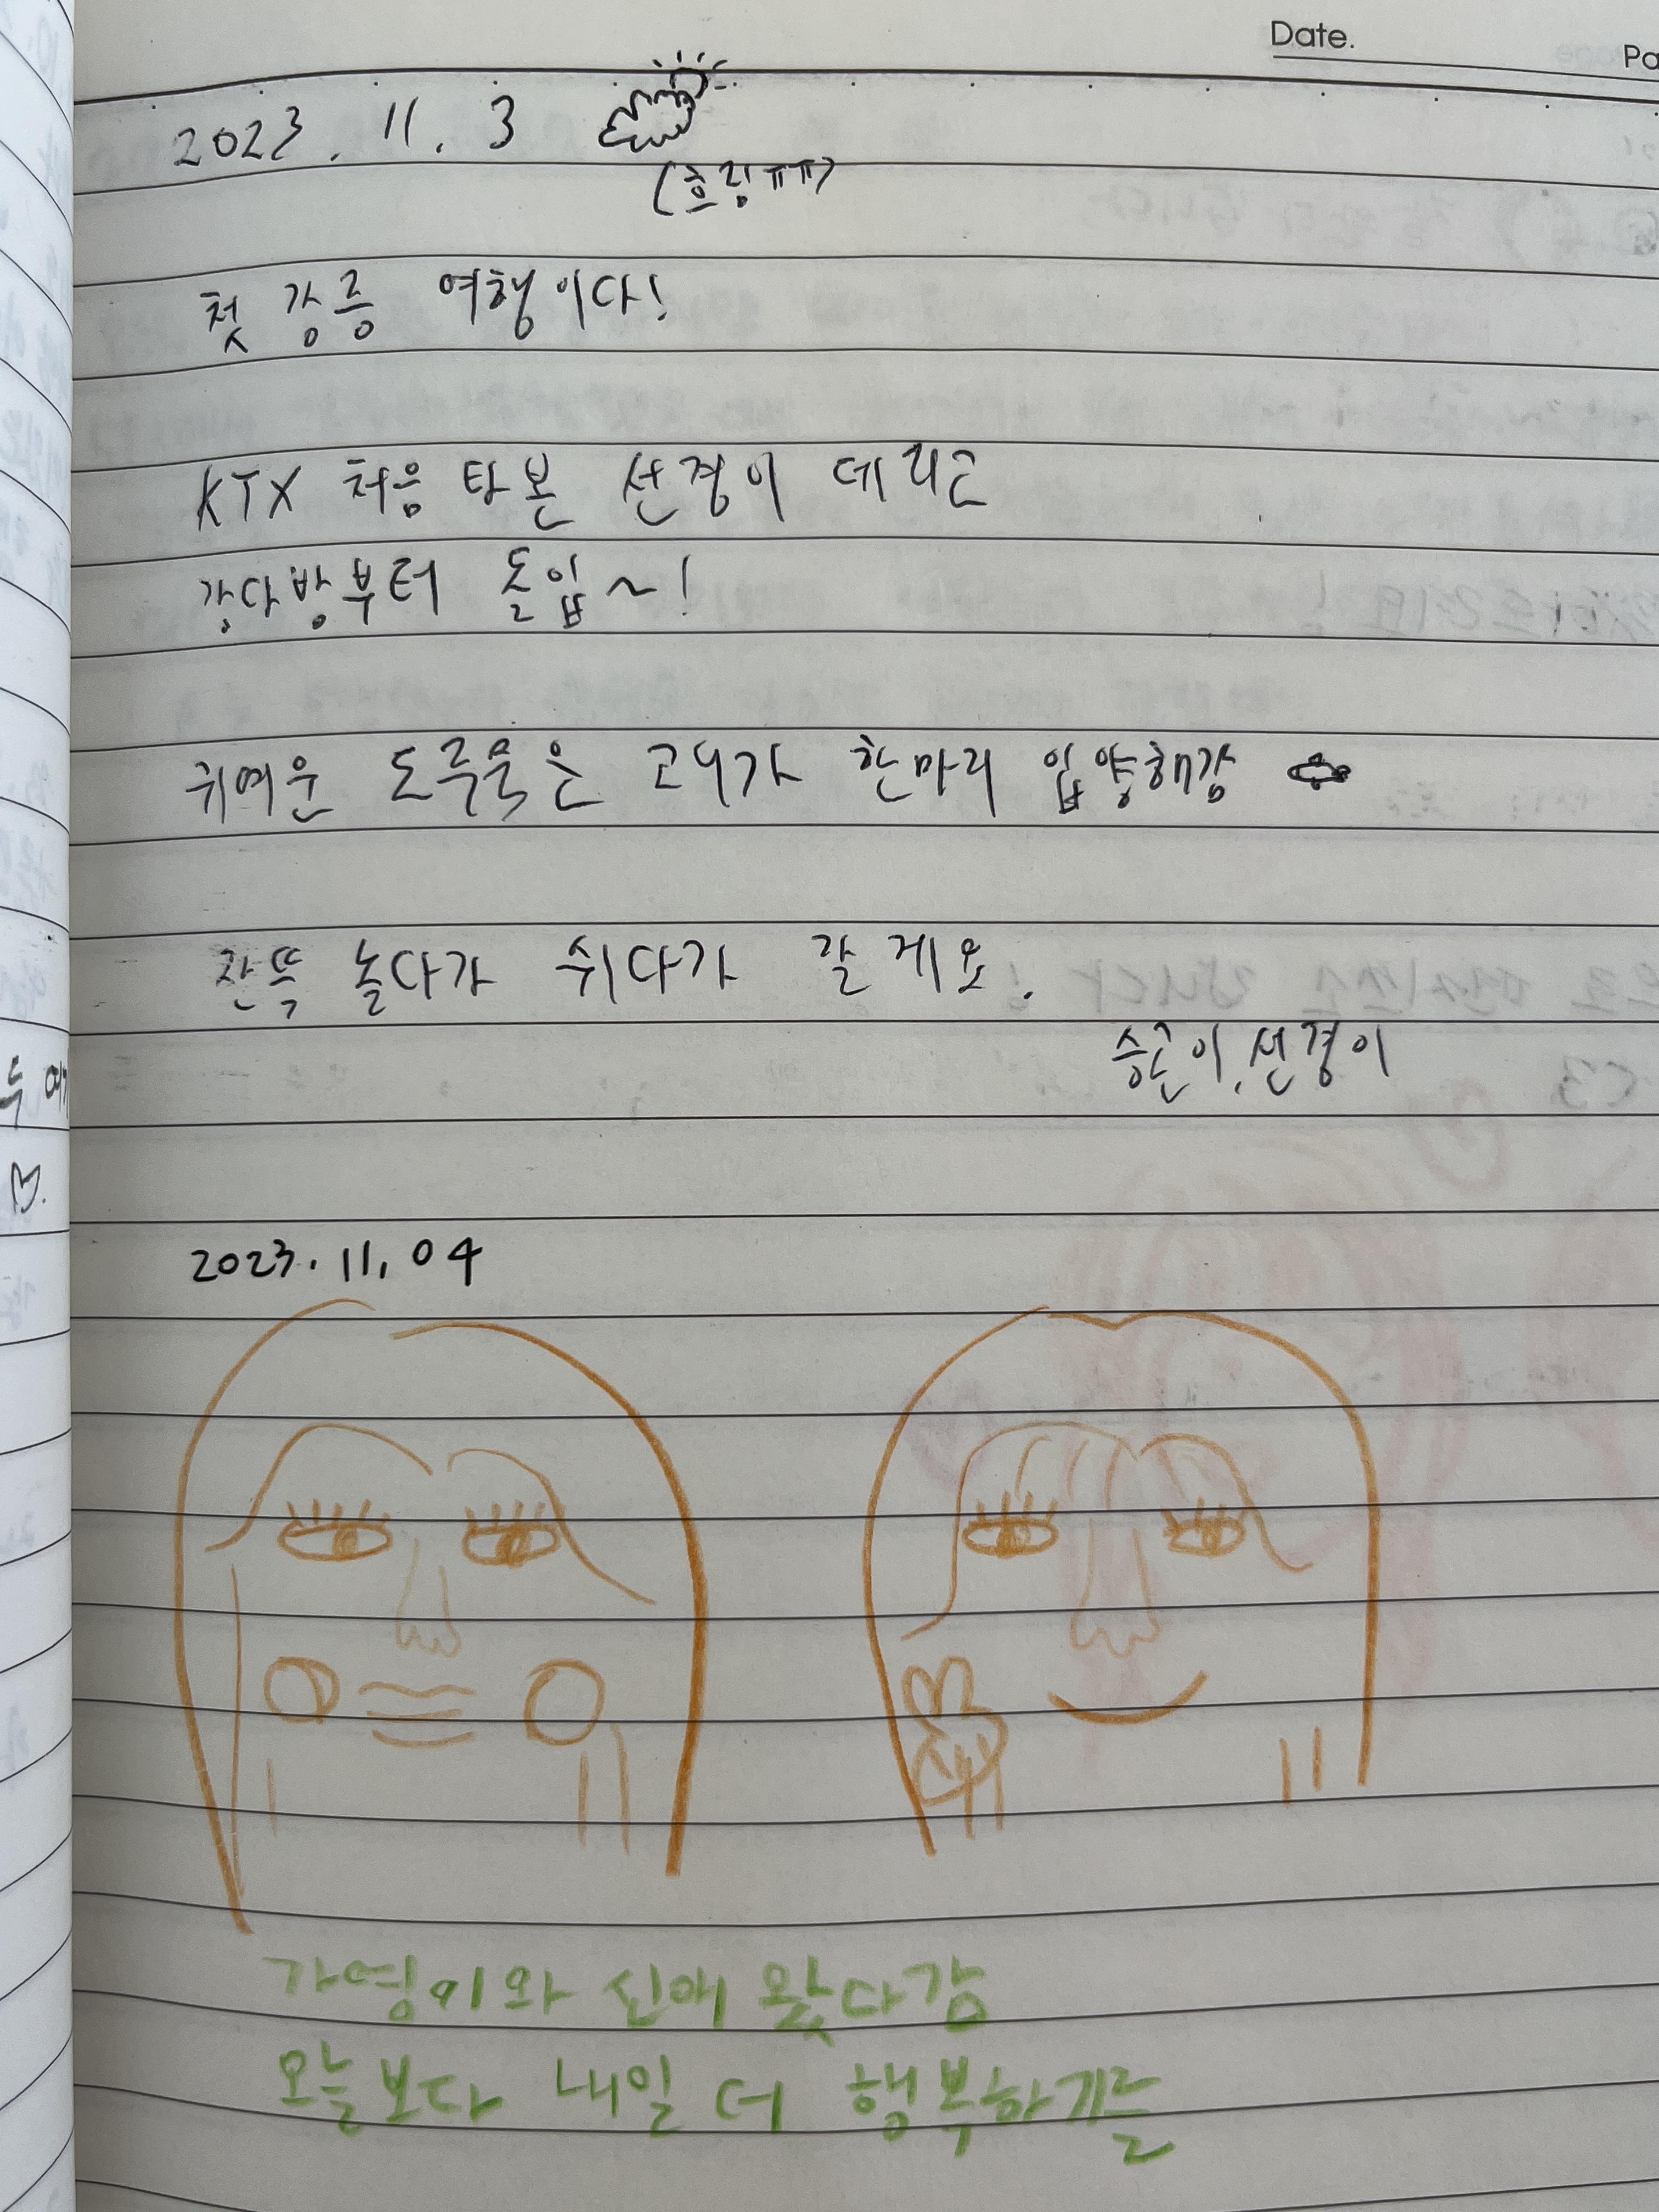 Date.
2023. 11. 3
(흐림ㅠㅠ)
첫 강릉 여행이다!
KTX 처음 타본 선경이 데리고
강다방부터 돌입~!
귀여운 도루묵은 고이가 한마리 입양해감
잔뜩 놀다가 쉬다가 갈게요.
승근이, 선경이
2023. 11. 04
가영이와 신애 왔다감
오늘보다 내일 더 행복하기를